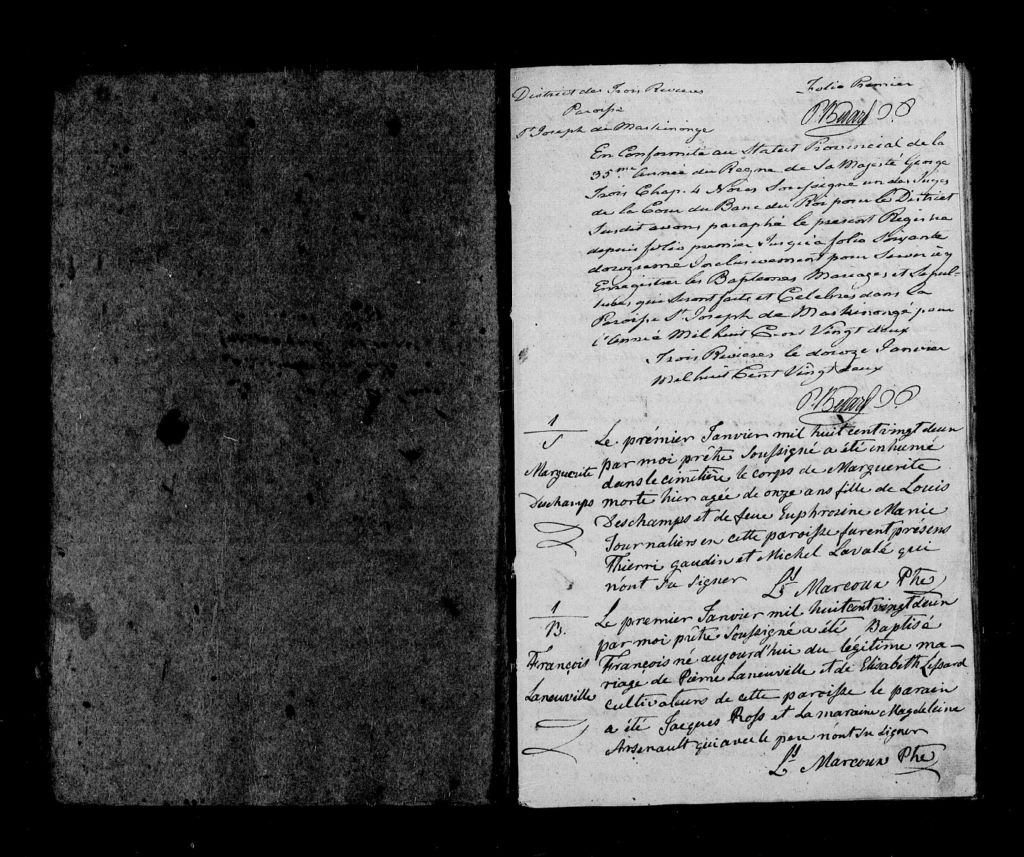 District des Trois Rivieres
Paroisse
St. Joseph de Maskinongé
Folio Premier
P. Bedard
En Conformité au Statut Provincial de la
35me Année du Regne de Sa Majesté George
Trois Chap. 4 Nous Soussigné un des Juges
de la Cour du Banc du Roi pour le District
Susdit avons paraphé le present Registre
depuis folio premier Jusqu'à folio Soixante
douzieme Inclusivement pour Servir à y
Enregistrer les Baptemes Mariages et Sepul-
tures qui Seront faits et Celebrés dans la
Paroisse St. Joseph de Maskinongé pour
l'Année Mil huit Cent Vingt deux
Trois Rivieres le douze Janvier
Mil huit Cent Vingt deux
P. Bedard
1
S
Marguerite
Deschamps
Le prémier Janvier mil huit cent vingt deux
par moi prêtre Soussigné a été inhumé
dans le cimetière le corps de Marguerite
morte hier agée de onze ans fille de Louis
Deschamps et de feue Euphrosine Marie
Journaliers en cette paroisse furent présens
Thierri gaudin et Michel Lavalé qui
n'ont su signer
Ls Marcoux Ptre
1
B.
François
Laneuville
Le premier Janvier mil huit cent vingt deux
par moi prêtre Soussigné a été Baptisé
François né aujourd'hui du légitime ma-
riage de Pierre Laneuville et de Elisabeth Lessard
cultivateurs de cette paroisse le parain
a été Jacques Ross et la maraine Magdeleine
Arsenault qui avec le pere n'ont su signer
Ls Marcoux Ptre